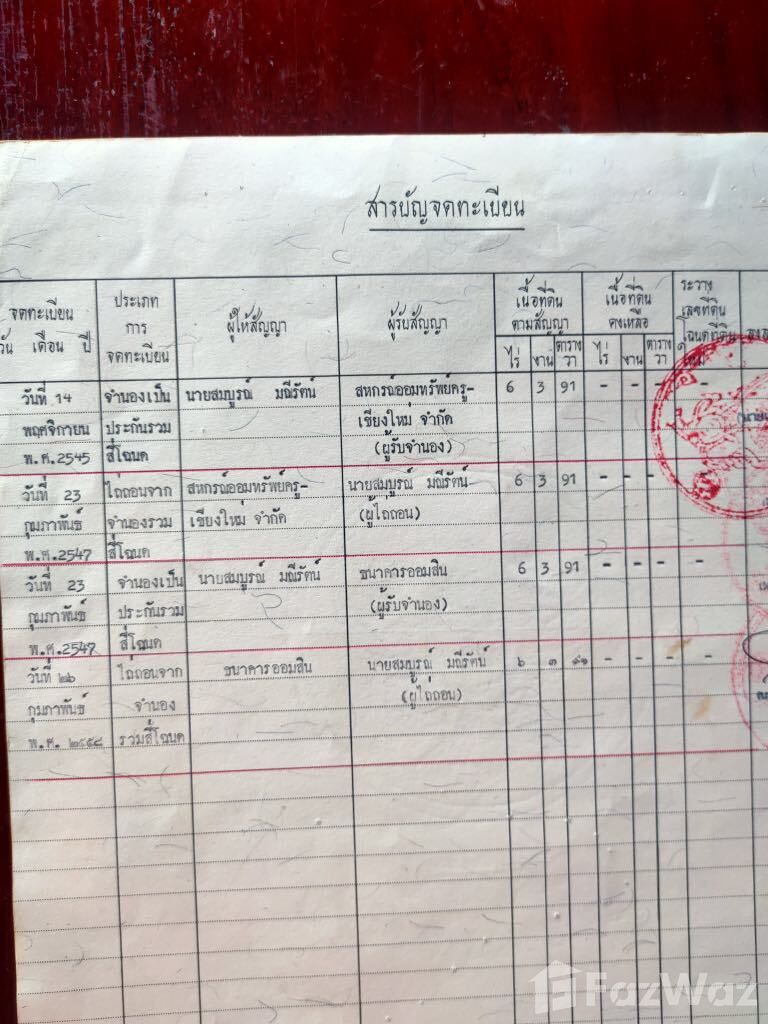 สารบัญจดทะเบียน
จดทะเบียน
วัน เดือน ปี
ประเภท
การ
จดทะเบียน
ผู้ให้สัญญา
ผู้รับสัญญา
เนื้อที่ดิน
ตามสัญญา
ไร่ งาน ตาราง
วา
เนื้อที่ดิน
คงเหลือ
ไร่ งาน ตาราง
วา
ระวาง
เลขที่ดิน
โฉนดที่ดิน
ใหม่
วันที่ 14 จำนองเป็น นายสมบูรณ์ มณีรัตน์ สหกรณ์ออมทรัพย์ครู- 6 3 91 - - - -
พฤศจิกายน ประกันรวม เชียงใหม่ จำกัด
พ.ศ.2545 สี่โฉนด (ผู้รับจำนอง)
วันที่ 23 ไถ่ถอนจาก สหกรณ์ออมทรัพย์ครู- นายสมบูรณ์ มณีรัตน์ 6 3 91 - - -
กุมภาพันธ์ จำนองรวม เชียงใหม่ จำกัด (ผู้ไถ่ถอน)
พ.ศ.2547 สี่โฉนด
วันที่ 23 จำนองเป็น นายสมบูรณ์ มณีรัตน์ ธนาคารออมสิน 6 3 91 - - - -
กุมภาพันธ์ ประกันรวม (ผู้รับจำนอง)
พ.ศ.2547 สี่โฉนด
วันที่ ๒๖ ไถ่ถอนจาก ธนาคารออมสิน นายสมบูรณ์ มณีรัตน์ ๖ ๓ ๙๑ - - - -
กุมภาพันธ์ จำนอง (ผู้ไถ่ถอน)
พ.ศ. ๒๕๕๘ รวมสี่โฉนด
FazWaz